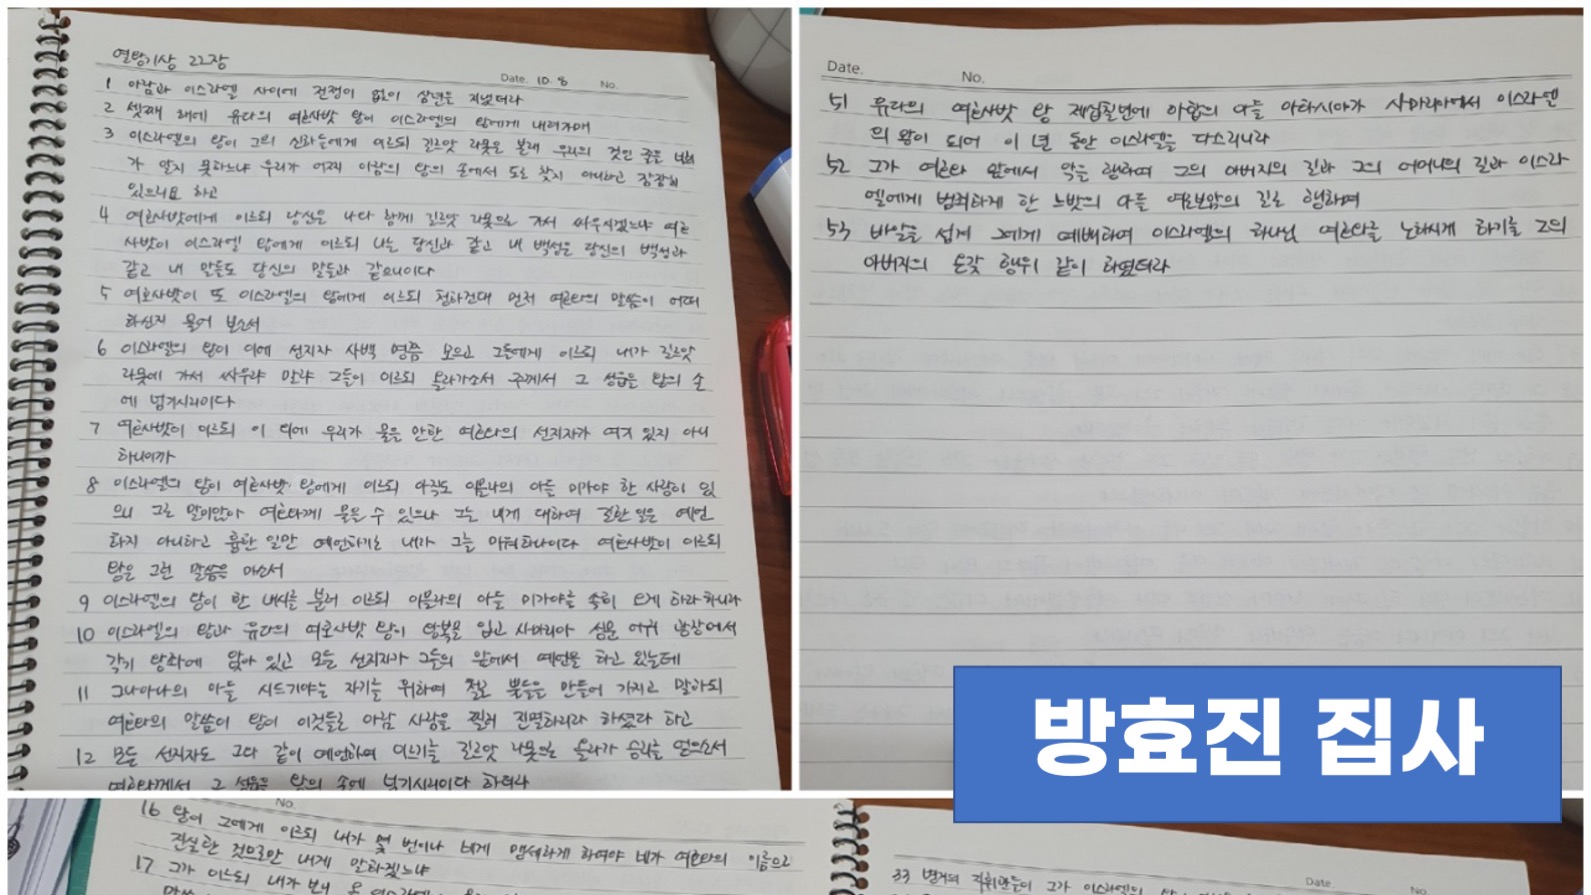 열왕기상 22장
Date. 10. 8 No.
1 아람과 이스라엘 사이에 전쟁이 없이 삼년을 지냈더라
2 셋째 해에 유다의 여호사밧 왕이 이스라엘의 왕에게 내려가매
3 이스라엘의 왕이 그의 신하들에게 이르되 길르앗 라못은 본래 우리의 것인 줄을 너희
가 알지 못하느냐 우리가 어찌 아람의 왕의 손에서 도로 찾지 아니하고 잠잠히
있으리요 하고
4 여호사밧에게 이르되 당신은 나와 함께 길르앗 라못으로 가서 싸우시겠느냐 여호
사밧이 이스라엘 왕에게 이르되 나는 당신과 같고 내 백성은 당신의 백성과
같고 내 말들도 당신의 말들과 같으니이다
5 여호사밧이 또 이스라엘의 왕에게 이르되 청하건대 먼저 여호와의 말씀이 어떠
하신지 물어 보소서
6 이스라엘의 왕이 이에 선지자 사백 명쯤 모으고 그들에게 이르되 내가 길르앗
라못에 가서 싸우랴 말랴 그들이 이르되 올라가소서 주께서 그 성읍을 왕의 손
에 넘기시리이다
7 여호사밧이 이르되 이 외에 우리가 물을 만한 여호와의 선지자가 여기 있지 아니
하니이까
8 이스라엘의 왕이 여호사밧 왕에게 이르되 아직도 이믈라의 아들 미가야 한 사람이 있
으니 그로 말미암아 여호와께 물을 수 있으나 그는 내게 대하여 길한 일은 예언
하지 아니하고 흉한 일만 예언하기로 내가 그를 미워하나이다 여호사밧이 이르되
왕은 그런 말씀을 마소서
9 이스라엘의 왕이 한 내시를 불러 이르되 이믈라의 아들 미가야를 속히 오게 하라 하니라
10 이스라엘의 왕과 유다의 여호사밧 왕이 왕복을 입고 사마리아 성문 어귀 광장에서
각기 왕좌에 앉아 있고 모든 선지자가 그들의 앞에서 예언을 하고 있는데
11 그나아나의 아들 시드기야는 자기를 위하여 철로 뿔들을 만들어 가지고 말하되
여호와의 말씀이 왕이 이것들로 아람 사람을 찔러 진멸하리라 하셨다 하고
12 모든 선지자도 그와 같이 예언하여 이르기를 길르앗 라못으로 올라가 승리를 얻으소서
여호와께서 그 성읍을 왕의 손에 넘기시리이다 하더라
Date. No.
51 유다의 여호사밧 왕 제십칠년에 아합의 아들 아하시야가 사마리아에서 이스라엘
의 왕이 되어 이 년 동안 이스라엘을 다스리니라
52 그가 여호와 앞에서 악을 행하여 그의 아버지의 길과 그의 어머니의 길과 이스라
엘에게 범죄하게 한 느밧의 아들 여로보암의 길로 행하며
53 바알을 섬겨 그에게 예배하여 이스라엘의 하나님 여호와를 노하시게 하기를 그의
아버지의 온갖 행위 같이 하였더라
방효진 집사
No.
16 왕이 그에게 이르되 내가 몇 번이나 네게 맹세하게 하여야 네가 여호와의 이름으로
진실한 것으로만 내게 말하겠느냐
17 그가 이르되 내가 보니 온
Date
33 병거의 지휘관들이 그가 이스라엘의